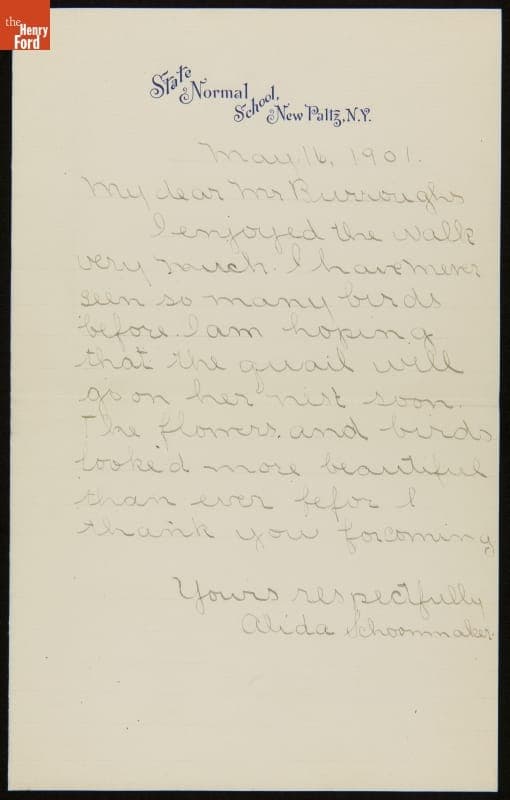 the
Henry
Ford
State Normal School, New Paltz, N.Y.
May 16, 1901.
My dear Mr Burroughs
I enjoyed the walk
very much. I have never
seen so many birds
before. I am hoping
that the quail will
go on her nist soon.
The flowers and birds
looked more beautiful
than ever befor I
thank you for coming
Yours respectfully
Alida Schoonmaker.